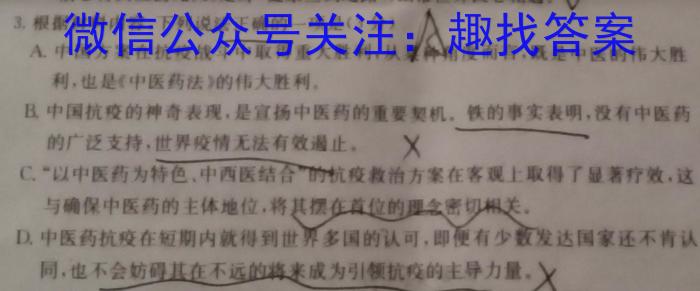 3. 根据
微信公众号关注：趣找答案
A. 中医方案在抗疫战 中取得重大胜利，从某种角度而言，就是中医的伟大胜
利，也是《中医药法》的伟大胜利。
B. 中国抗疫的神奇表现，是宣扬中医药的重要契机。铁的事实表明，没有中医药
的广泛支持，世界疫情无法有效遏止。
C. “以中医药为特色、中西医结合”的抗疫救治方案在客观上取得了显著疗效，这
与确保中医药的主体地位，将其摆在首位的理念密切相关。
D. 中医药抗疫在短期内就得到世界多国的认可，即便有少数发达国家还不肯认
同，也不会妨碍其在不远的将来成为引领抗疫的主导力量。